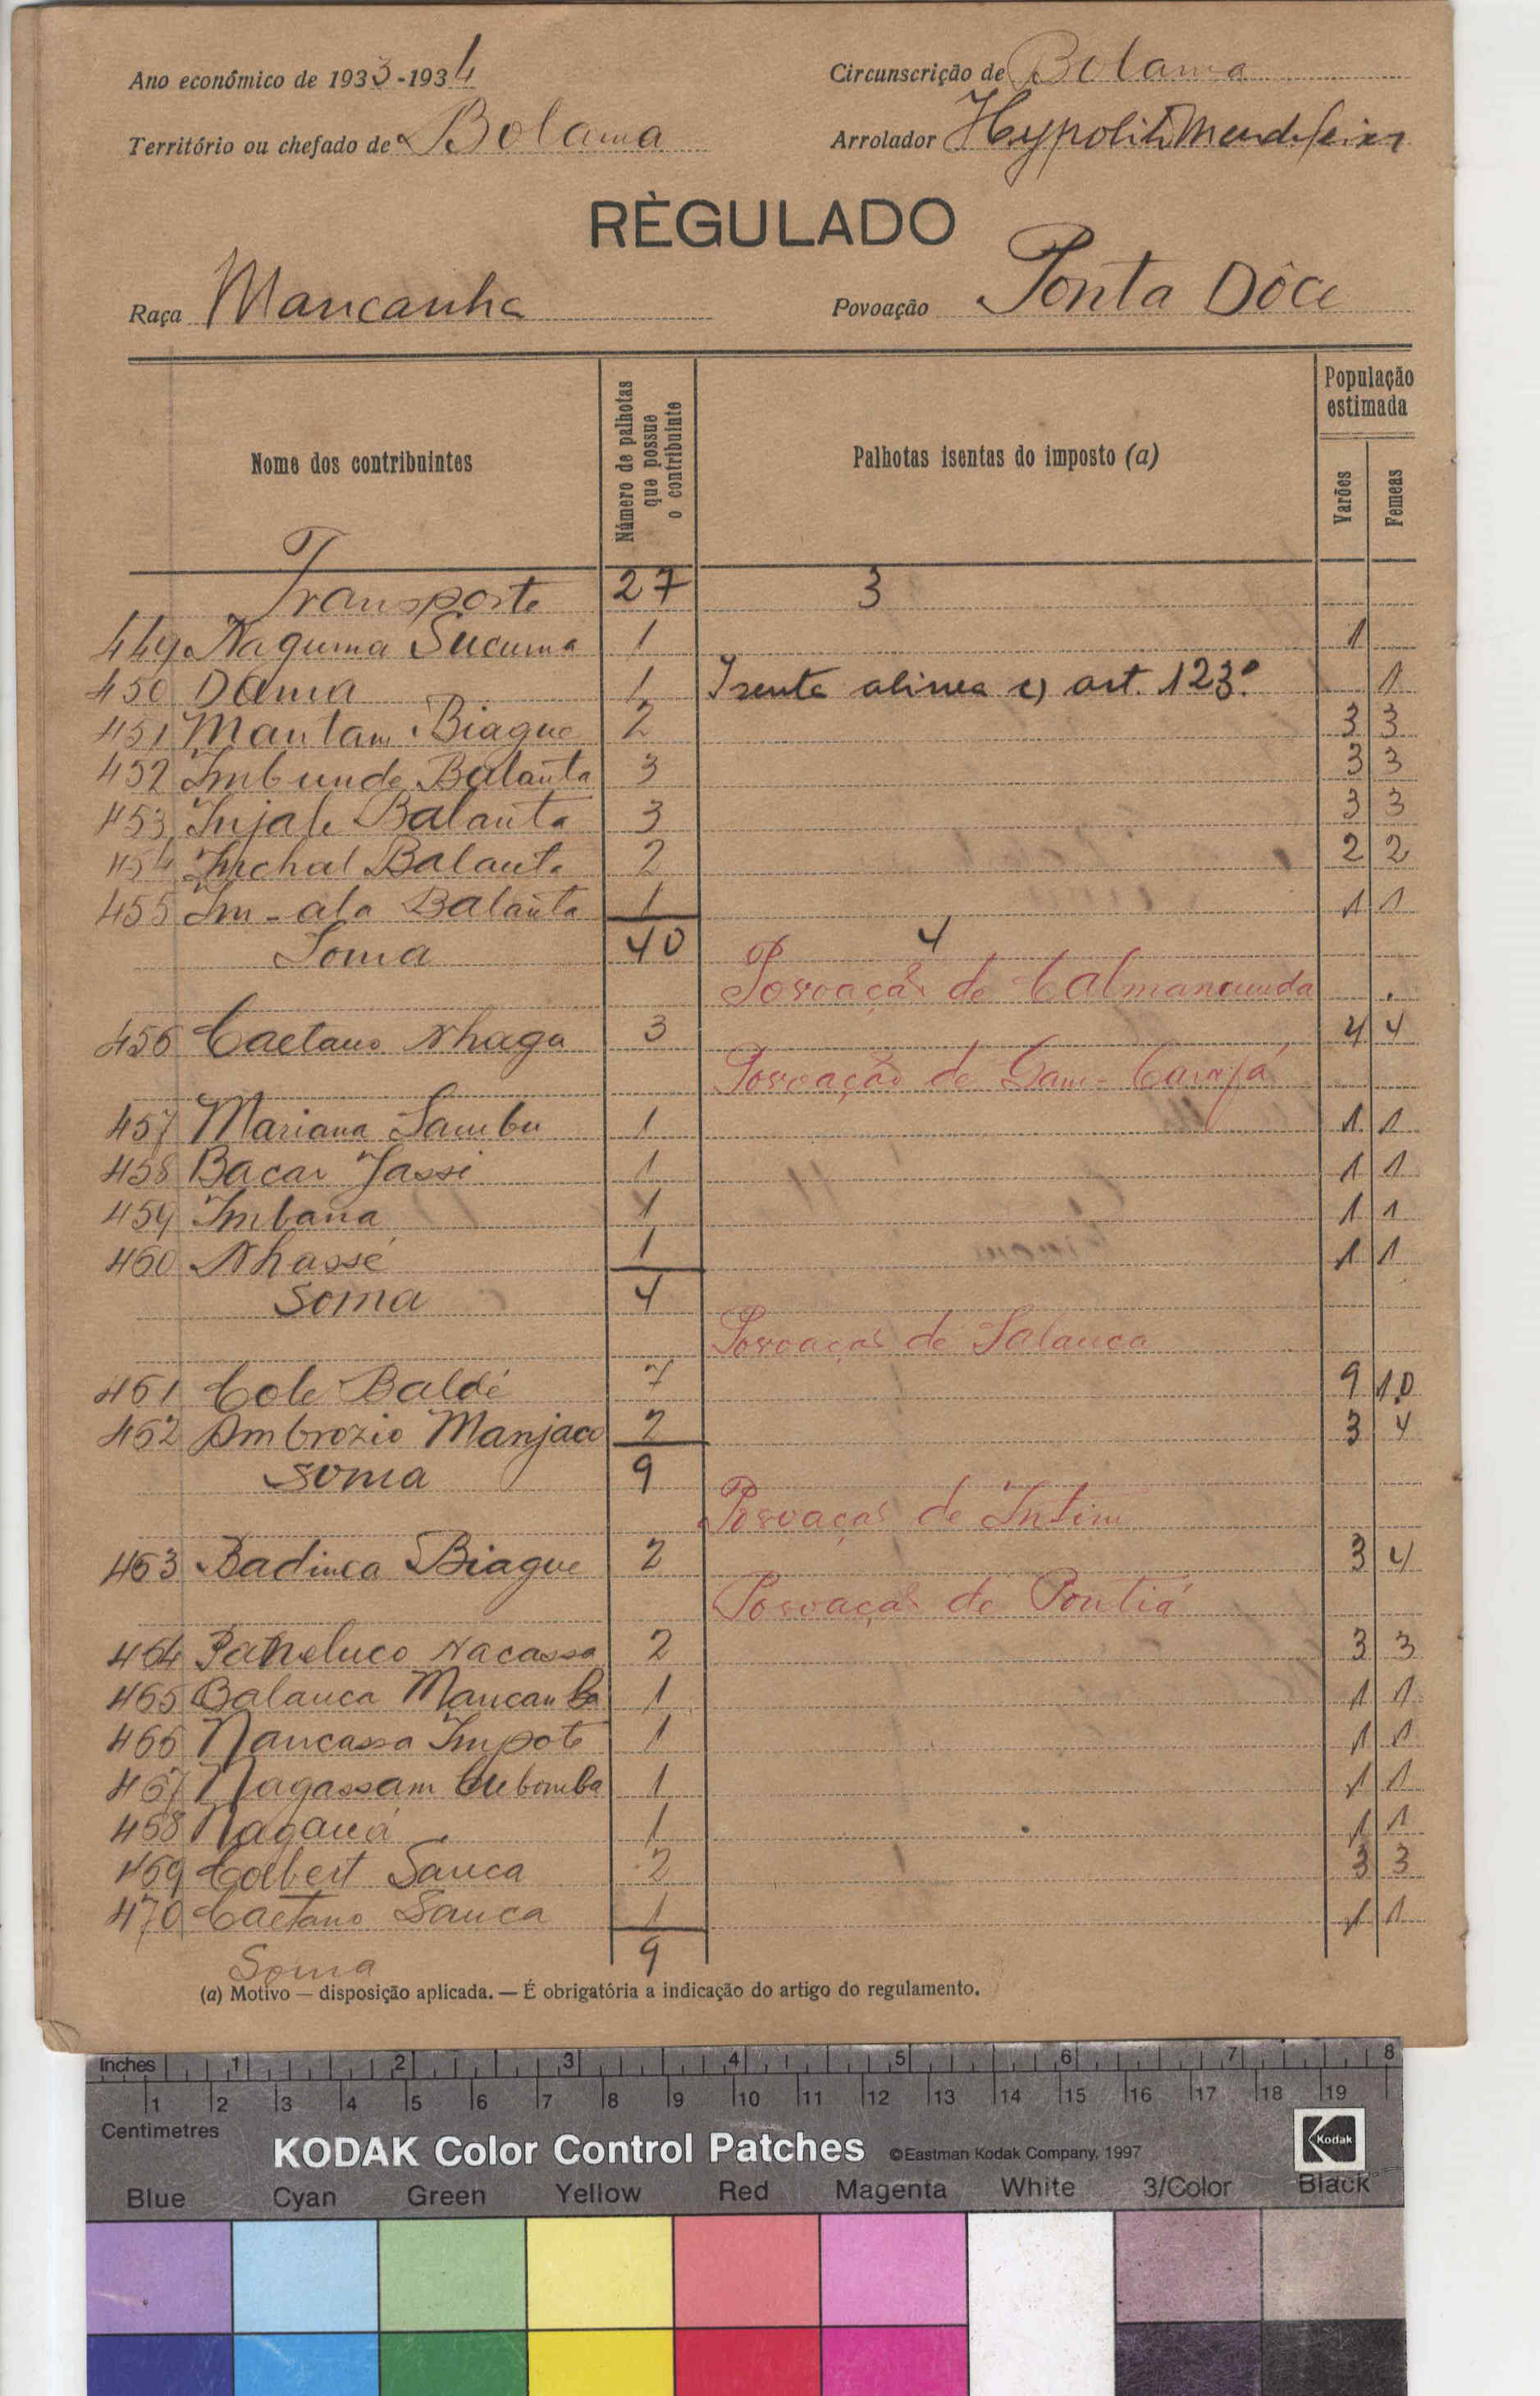 Ano económico de 1933-1934
Circunscrição de Bolama
Território ou chefado de Bolama
Arrolador Hypolito
RÈGULADO
Raça Mancanha
Povoação Ponta Dôce
Nome dos contribuintes
Número de palhotas
que possue
o contribuinte
Palhotas isentas do imposto (a)
População
estimada
Varões
Femeas
Transporte 27 3
449 Naguma Sucuma 1 1
450 Dama 1 Isenta alinea c) art. 123º 1
451 Mantam Biague 2 3 3
452 Imbunde Balanta 3 3 3
453 Injale Balanta 3 3 3
454 Inchal Balanta 2 2 2
455 Im-ala Balanta 1 1 1
Soma 40 4
Povoação de Calmancunda
456 Caetano Nhaga 3 4 4
Povoação de Gam-
457 Mariana Sambu 1 1 1
458 Bacar Jassi 1 1 1
459 Imbana 1 1 1
460 Nhassé 1 1 1
Soma 4
Povoação de Salanca
461 Cole Baldé 7 9 10
462 Ambrozio Manjaco 2 3 4
Soma 9
Povoação de Intim
463 Badinca Biague 2 3 4
Povoação de Pontiá
464 Nacassa 2 3 3
465 Balanca Mancanha 1 1 1
466 Nancassa Impote 1 1 1
467 Nagassam 1 1 1
468 1 1 1
469 Colbert Sanca 2 3 3
470 Caetano Sanca 1 1 1
Soma 9
(a) Motivo — disposição aplicada. — É obrigatória a indicação do artigo do regulamento.
Inches 1 2 3 4 5 6 7 8
1 2 3 4 5 6 7 8 9 10 11 12 13 14 15 16 17 18 19
Centimetres
KODAK Color Control Patches ©Eastman Kodak Company, 1997 Kodak
Blue Cyan Green Yellow Red Magenta White 3/Color Black